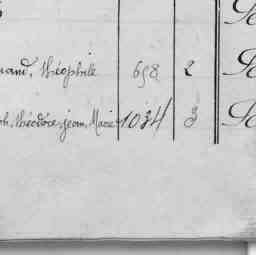 Théophile 658 2 Se
Théodore, Jean, Marie 1034 3 Se